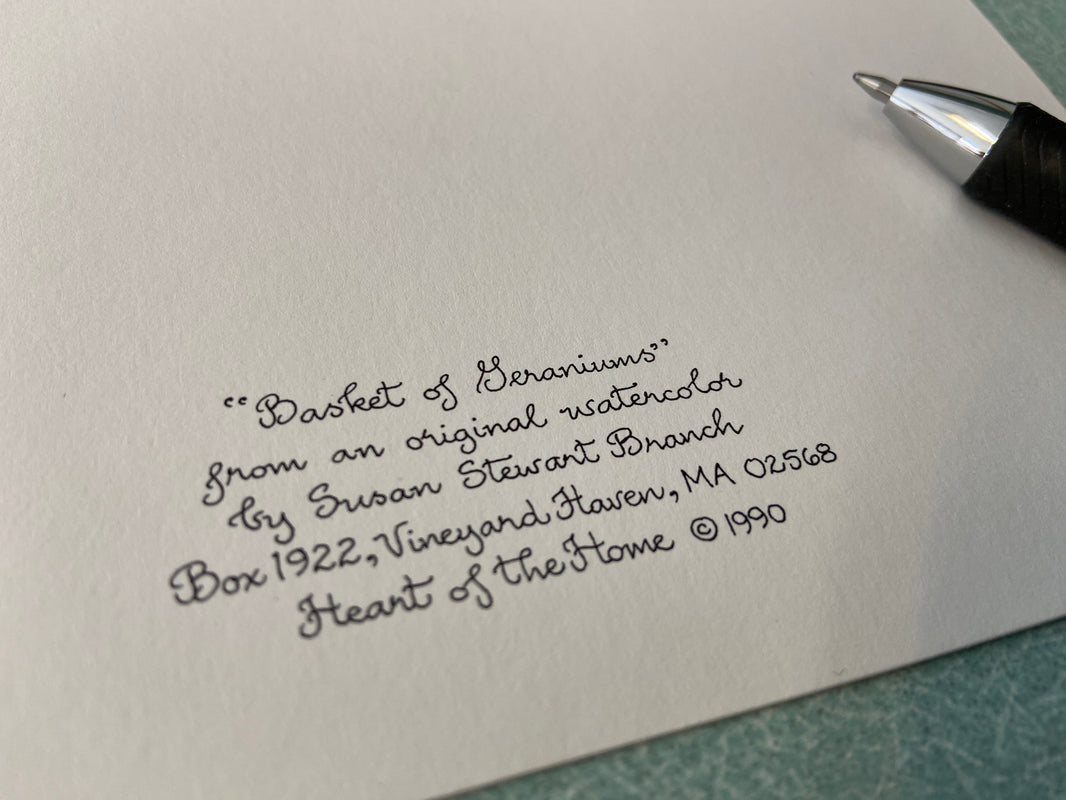 “Basket of Geraniums”
from an original watercolor
by Susan Stewart Branch
Box 1922, Vineyard Haven, MA 02568
Heart of the Home © 1990